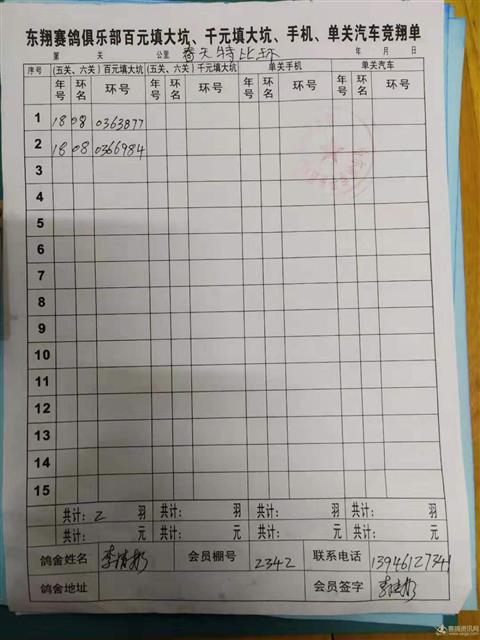 东翔赛鸽俱乐部百元填大坑、千元填大坑、手机、单关汽车竞翔单
第 关 公里 春天特比环 年 月 日
序号 (五关、六关)百元填大坑 (五关、六关)千元填大坑 单关手机 单关汽车
年号 环名 环号 年号 环名 环号 年号 环名 环号 年号 环名 环号
1 18 08 0363877
2 18 08 0366984
3
4
5
6
7
8
9
10
11
12
13
14
15
共计: 2 羽 共计: 羽 共计: 羽 共计: 羽
共计: 元 共计: 元 共计: 元 共计: 元
鸽舍姓名 会员棚号 2342 联系电话 13946127341
鸽舍地址 会员签字
赛鸽资讯网